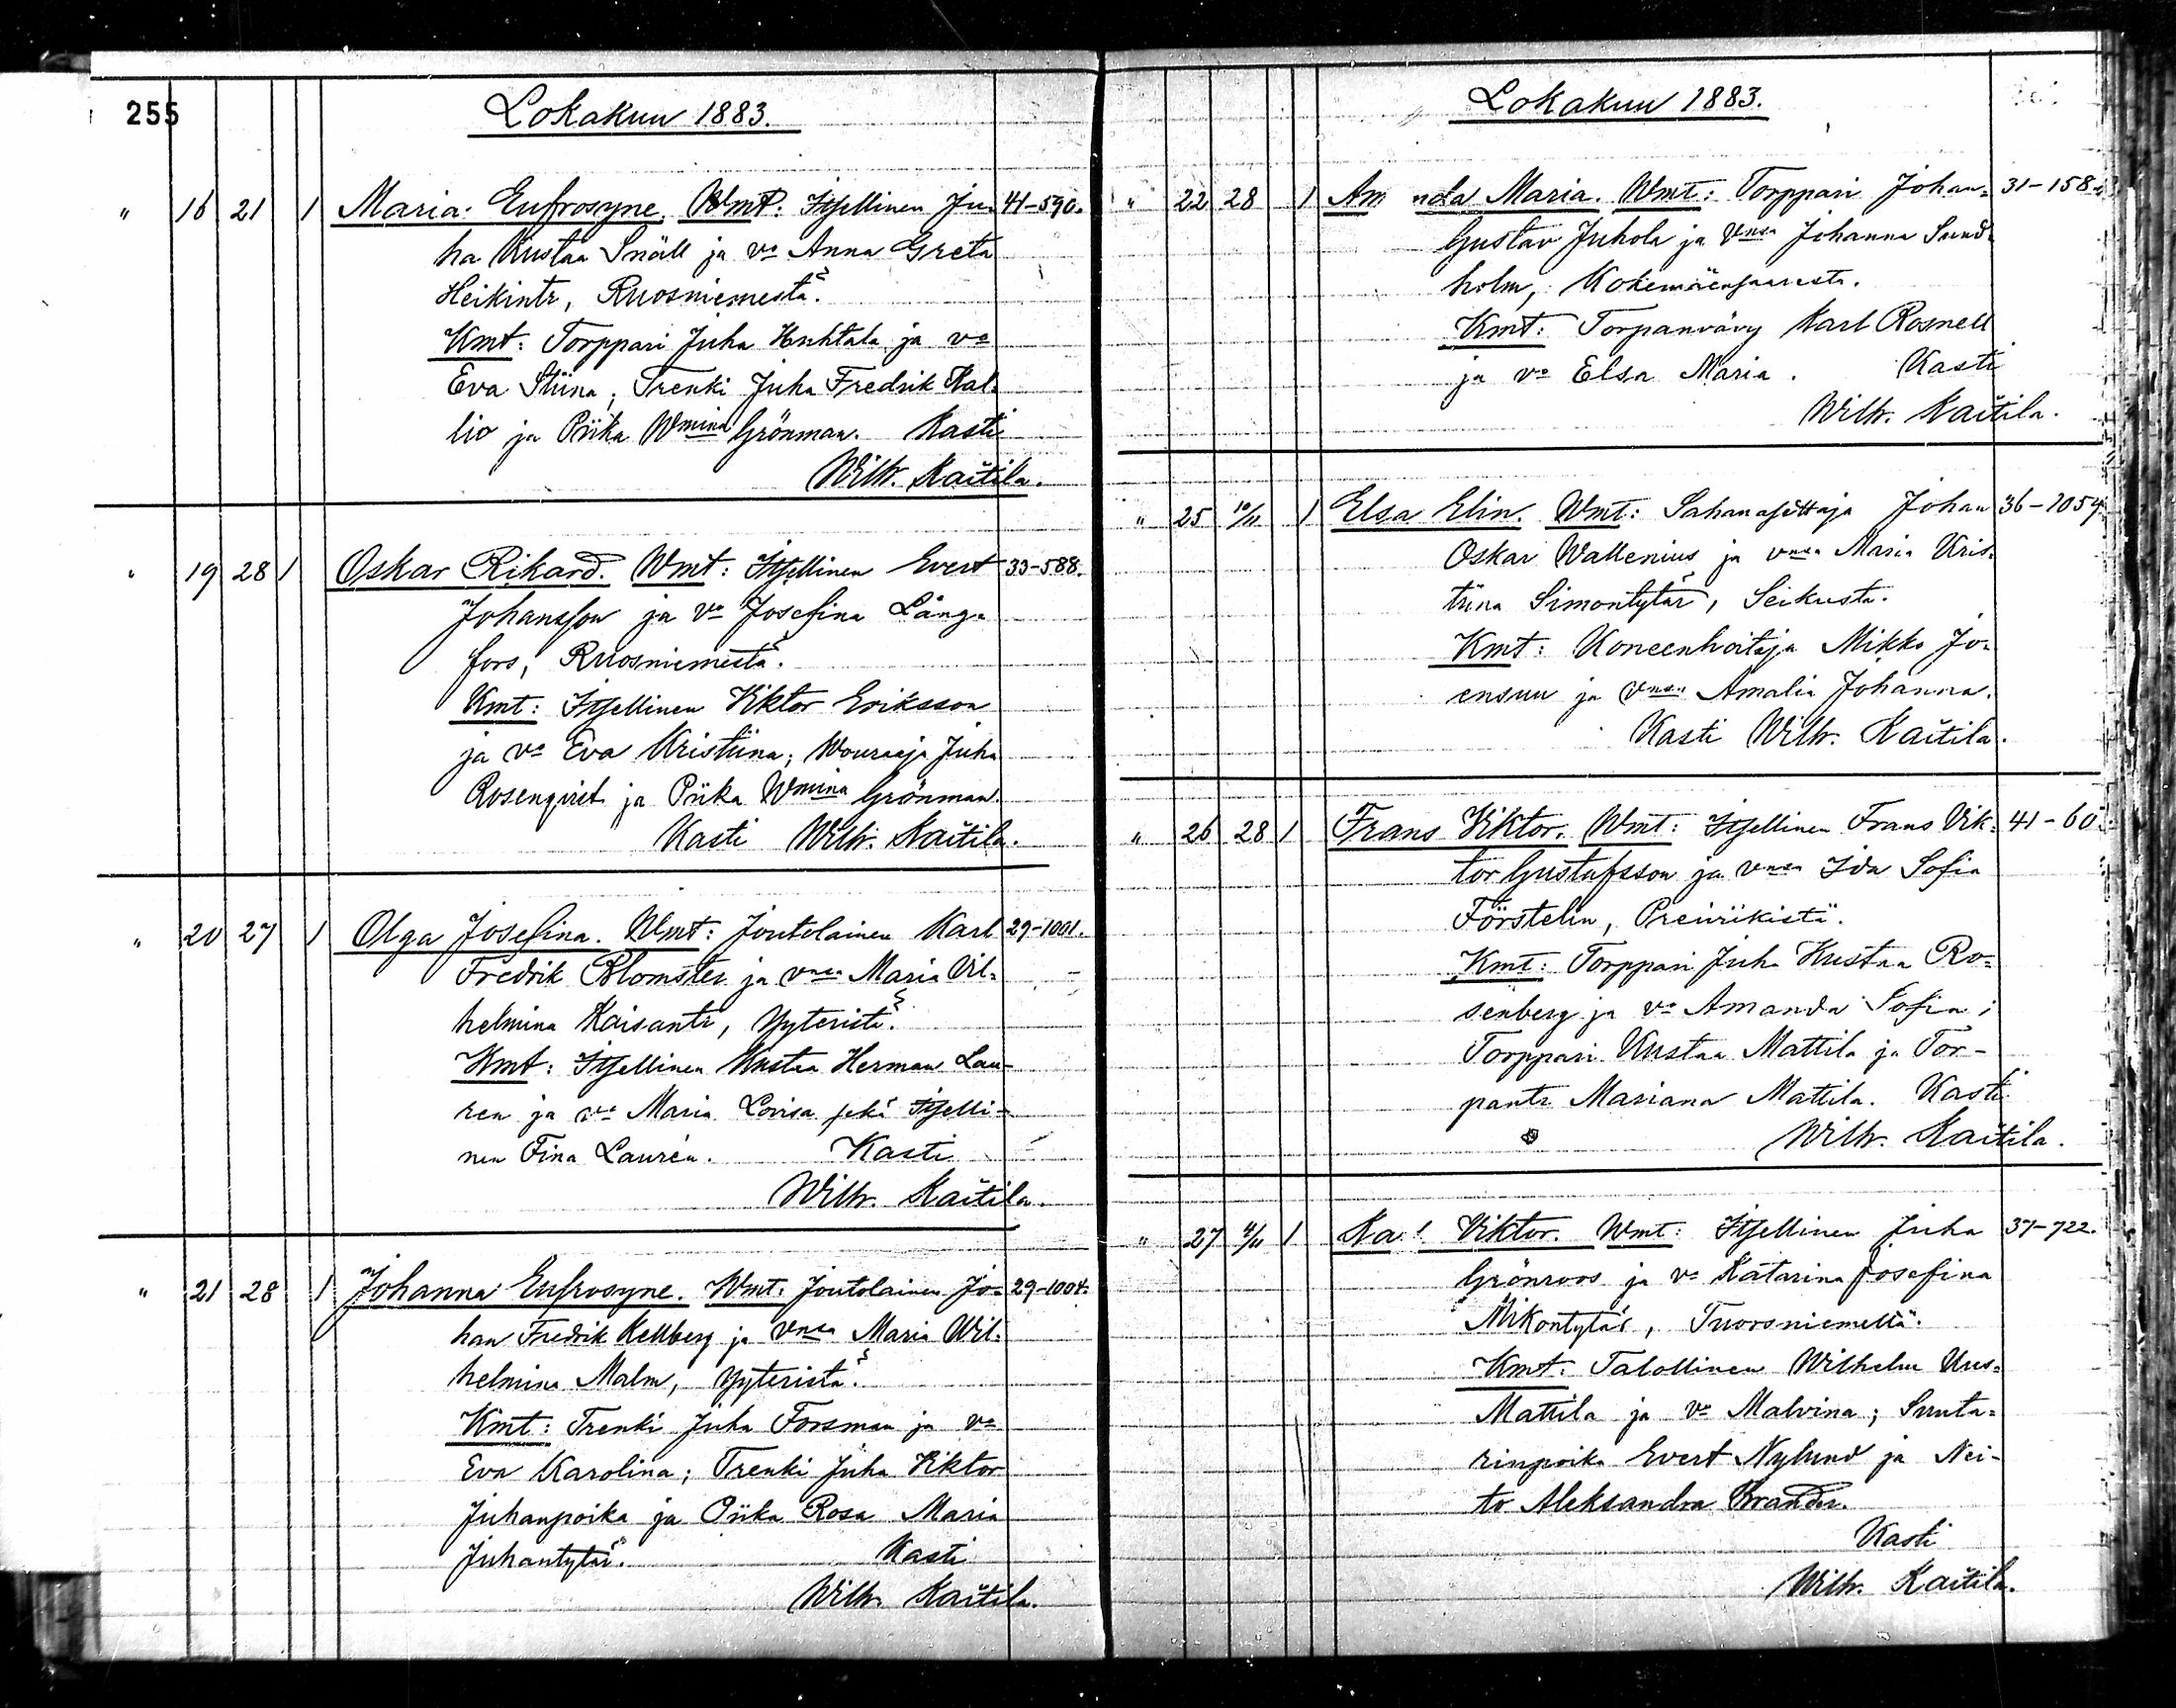 255
Lokakuu 1883.
" 16 21 1 Maria Eufrosyne. Wmt: Itsellinen Ju- 41-590.
ha Kustaa Snäll ja vo Anna Greta
Heikintr, Ruosniemestä.
Kmt: Torppari Juha Huhtala ja vo
Eva Stiina; Trenki Juha Fredrik Kal-
lio ja Piika Wmina Grönman. Kasti
Wilh. Kaitila.
" 19 28 1 Oskar Rikard. Wmt: Itsellinen Evert 33-588.
Johansson ja vo Josefina Lång-
fors, Ruosniemestä.
Kmt: Itsellinen Viktor Eriksson
ja vo Eva Kristiina; Wouraaja Juha
Rosenqvist ja Piika Wmina Grönman.
Kasti Wilh. Kaitila.
" 20 27 1 Olga Josefina. Wmt: Joutolainen Karl 29-1001.
Fredrik Blomster ja vnsa Maria Vil-
helmina Kaisantr, Yyteristä.
Kmt: Itsellinen Kustaa Herman Lau-
ren ja vo Maria Lovisa sekä Itselli-
nen Fina Laurén. Kasti
Wilh. Kaitila.
" 21 28 1 Johanna Eufrosyne. Wmt: Joutolainen Jo- 29-1004.
han Fredrik Kellberg ja vnsa Maria Wil-
helmina Malm, Yyteristä.
Kmt: Trenki Juha Forsman ja vo
Eva Karolina; Trenki Juha Viktor
Juhanpoika ja Piika Rosa Maria
Juhantytär. Kasti
Wilh. Kaitila.
Lokakuu 1883.
" 22 28 1 Am nda Maria. Wmt: Torppari Johan 31-158.
Gustav Juhola ja vnsa Johanna Sund-
holm, Kokemäensaaresta.
Kmt: Torpanvävy Karl Rosnell
ja vo Elsa Maria. Kasti
Wilh. Kaitila.
" 25 10/11 1 Elsa Elin. Wmt: Sahanasettaja Johan 36-1054.
Oskar Wallenius ja vnsa Maria Kris-
tiina Simontytär, Seikusta.
Kmt: Koneenhoitaja Mikko Jo-
ensuu ja vnsa Amalia Johanna.
Kasti Wilh. Kaitila.
" 26 28 1 Frans Viktor. Wmt: Itsellinen Frans Vik- 41-60.
tor Gustafsson ja vnsa Ida Sofia
Förstelin, Preiviikistä.
Kmt: Torppari Juha Kustaa Ro-
senberg ja vo Amanda Sofia;
Torppari Kustaa Mattila ja Tor-
pantr Mariana Mattila. Kasti
Wilh. Kaitila.
" 27 4/11 1 Ka l Viktor. Wmt: Itsellinen Juha 37-722.
Grönroos ja vo Katarina Josefina
Mikontytär, Tuorsniemeltä.
Kmt: Talollinen Wilhelm Uus-
Mattila ja vo Malvina; Suuta-
rinpoika Evert Nylund ja Nei-
to Aleksandra Brander.
Kasti
Wilh. Kaitila.